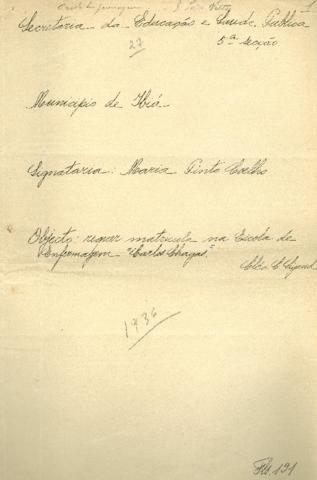 1
Secretaria da Educação e Saude Publica
27
5ª Secção
Municipio de Ibiá
Signataria: Maria Pinto Coelho
Objecto: requer matricula na Escola de
Enfermagem "Carlos Chagas".
1936
Fls. 191